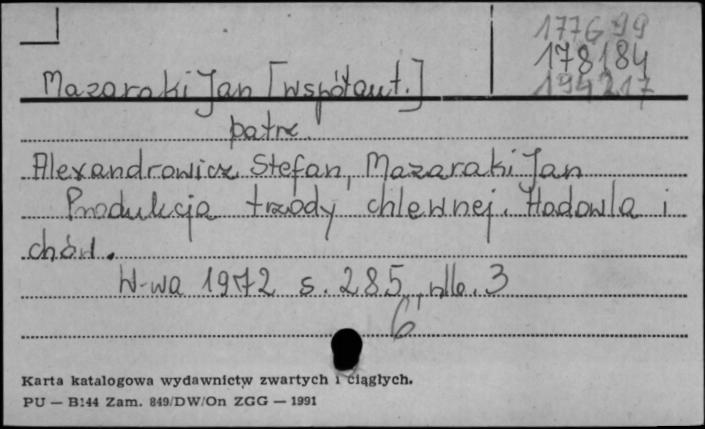 177699
178184
194217
Mazaraki Jan [współaut.]
patrz.
Alexandrowicz Stefan, Mazaraki Jan
Produkcja trzody chlewnej. Hodowla i
chów.
W-wa 1972 s. 285, nlb. 3
6
Karta katalogowa wydawnictw zwartych i ciągłych.
PU — B144 Zam. 849/DW/On ZGG — 1991